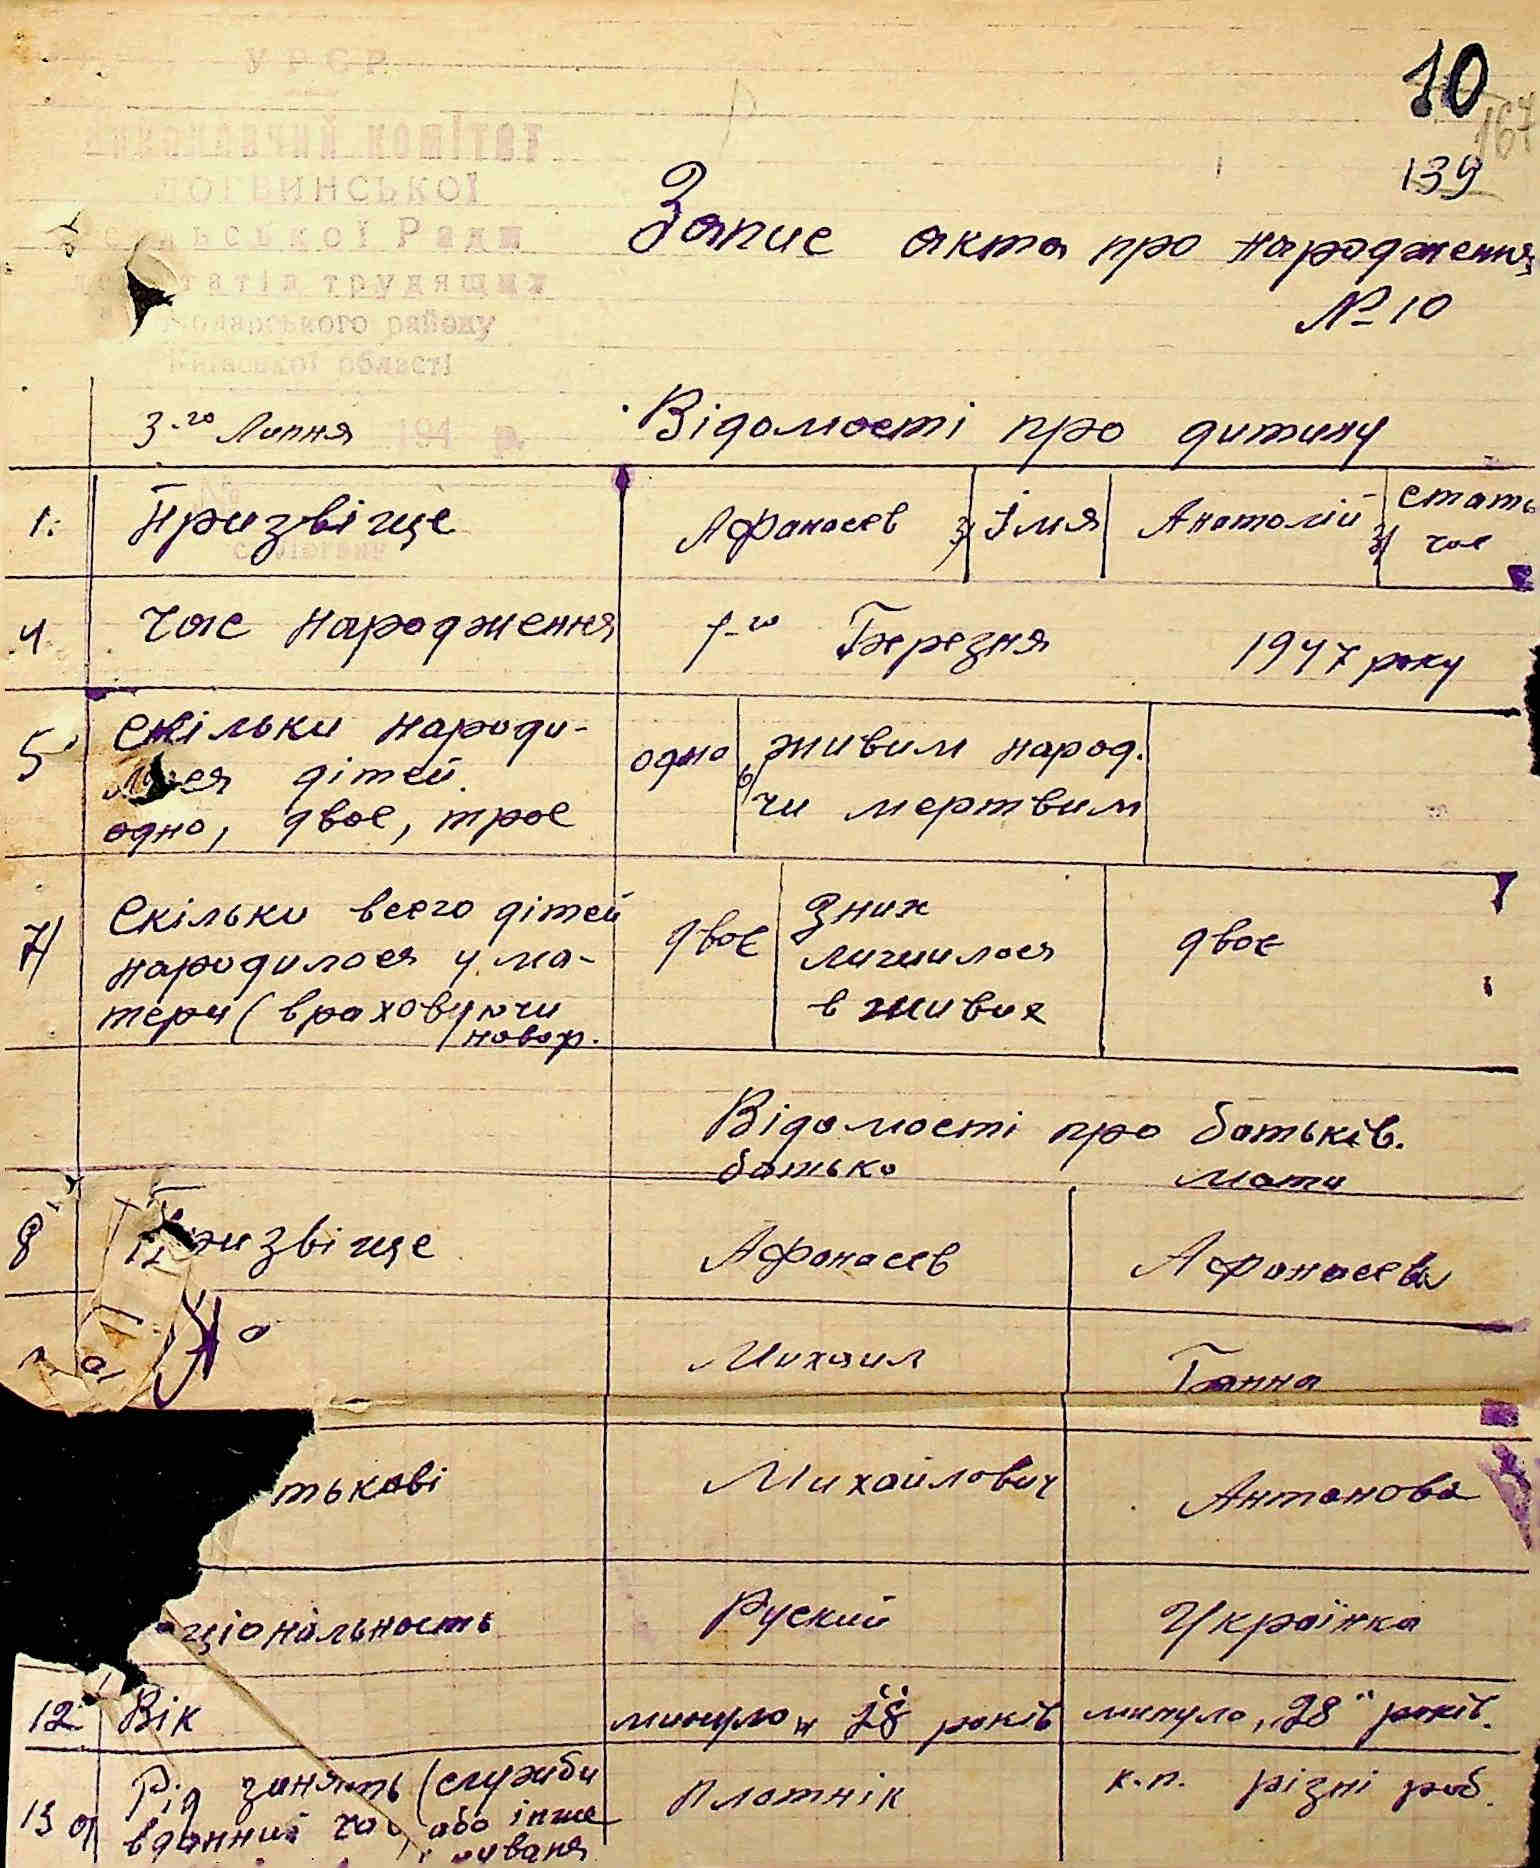 УРСР
виконавчий комітет
ЛОГВИНСЬКОЇ
сільської Ради
депутатів трудящих
району
Київської області
10
167
139
Запис акта про народження
№ 10
3-го Липня 194 р.
Відомості про дитину
1. Призвіще Афанасєв 2) Імя Анатолій 3) стать
чол
4 Час народження 1-го Березня 1947 року
5 Скільки народи-
лося дітей
одно, двоє, троє
одно 6) живим народ.
чи мертвим
7) Скільки всего дітей
народилося у ма-
тери (враховуючи
новор.
двоє
З них
лишилося
в живих
двоє
Відомості про батьків.
батько мати
8 Призвіще Афанасєв Афанасєва
Михаил Ганна
тькові Михайлович Антонова
ціональность Руский Українка
12 Вік минуло "28" років минуло "28" років.
13 а) Рід занять (служби
в данний час або інше
Плотнік
к.п. різні роб.